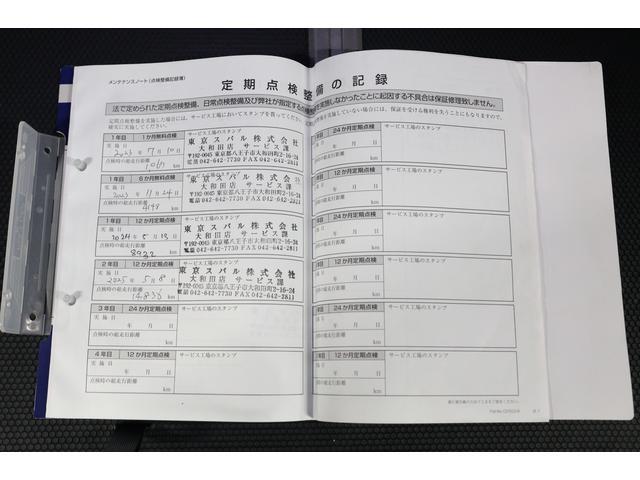 メンテナンスノート(点検整備記録簿)
定期点検整備の記録
法で定められた定期点検整備、日常点検整備及び弊社が指定する
実施しなかったことに起因する不具合は保証修理致しません。
定期点検整備を実施した場合には、サービス工場においてスタンプを貰ってください。
確実に実施してください。
実施していない場合には、保証を受ける権利を失うこともになりますので、
1年目 1か月無料点検
サービス工場のスタンプ
実施日
2023年7月10日
点検時の総走行距離
km
東京スバル株式会社
大和田店 サービス課
〒192-0045 東京都八王子市大和田町2-16-24
電話 042-642-7730 FAX 042-642-2811
1年目 6か月無料点検
サービス工場のスタンプ
実施日
2023年11月24日
点検時の総走行距離
4198 km
東京スバル株式会社
大和田店 サービス課
〒192-0045 東京都八王子市大和田町2-16-24
電話 042-642-7730 FAX 042-642-2811
1年目 12か月定期点検
サービス工場のスタンプ
実施日
2024年5月13日
点検時の総走行距離
8922 km
東京スバル株式会社
大和田店 サービス課
〒192-0045 東京都八王子市大和田町2-16-24
電話 042-642-7730 FAX 042-642-2811
2年目 12か月定期点検
サービス工場のスタンプ
実施日
2025年5月8日
点検時の総走行距離
km
東京スバル株式会社
大和田店 サービス課
〒192-0045 東京都八王子市大和田町2-16-24
電話 042-642-7730 FAX 042-642-2811
3年目 24か月定期点検
サービス工場のスタンプ
実施日
年 月 日
点検時の総走行距離
km
4年目 12か月定期点検
サービス工場のスタンプ
実施日
年 月 日
点検時の総走行距離
km
24か月定期点検
サービス工場のスタンプ
年 月 日
総走行距離
km
12か月定期点検
サービス工場のスタンプ
年 月 日
総走行距離
km
12か月定期点検
サービス工場のスタンプ
年 月 日
総走行距離
km
12か月定期点検
サービス工場のスタンプ
年 月 日
総走行距離
km
24か月定期点検
サービス工場のスタンプ
年 月 日
総走行距離
km
12か月定期点検
サービス工場のスタンプ
年 月 日
総走行距離
km